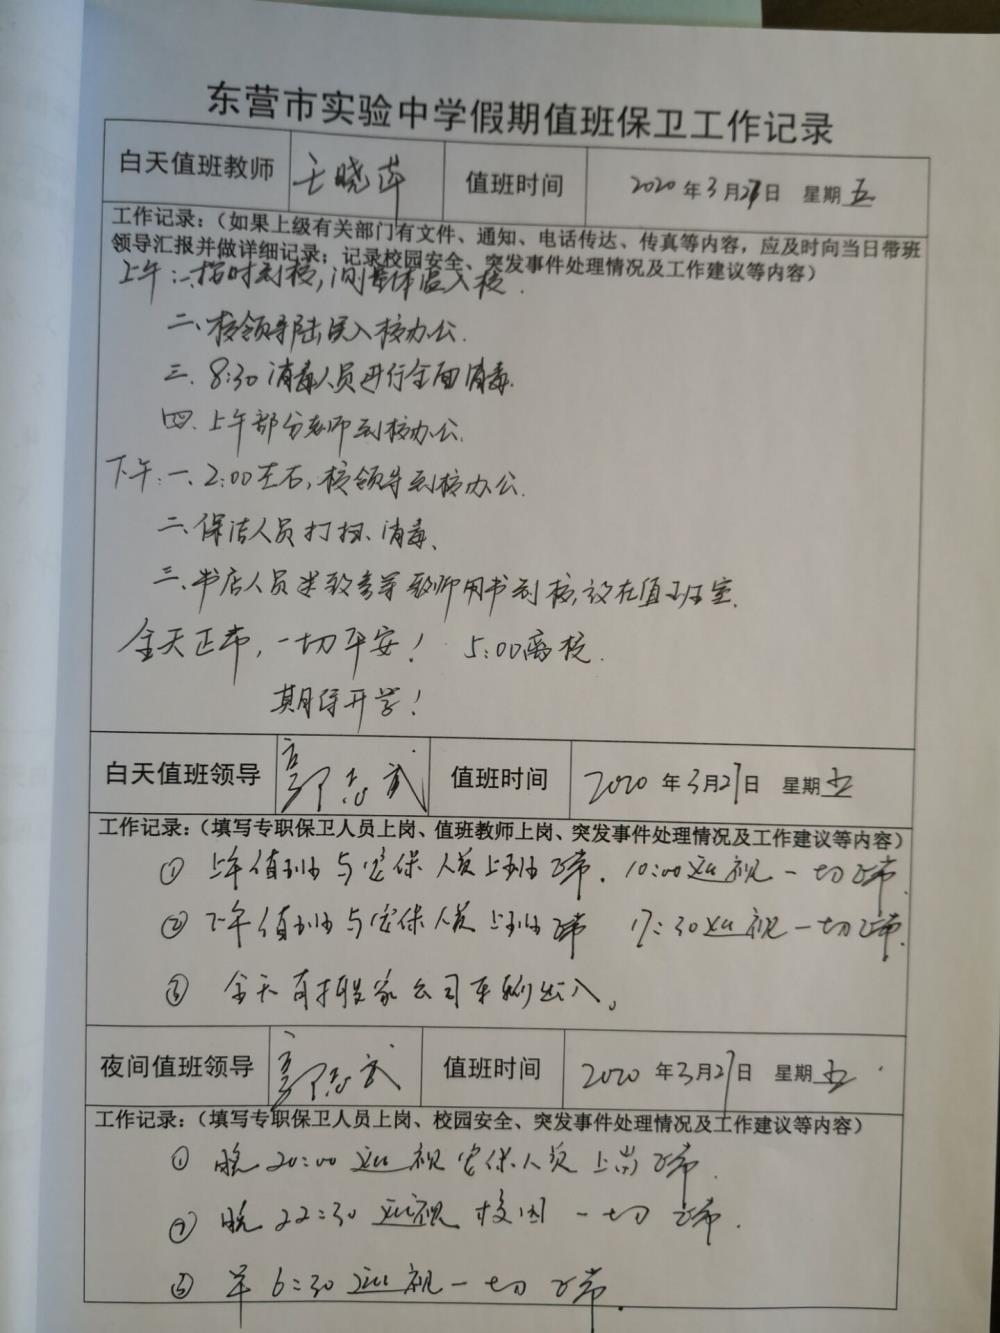 东营市实验中学假期值班保卫工作记录
白天值班教师 王晓萍 值班时间 2020年3月27日 星期五
工作记录：（如果上级有关部门有文件、通知、电话传达、传真等内容，应及时向当日带班
领导汇报并做详细记录；记录校园安全、突发事件处理情况及工作建议等内容）
上午：一、按时到校，测量体温入校．
二、校领导陆续入校办公．
三、8:30消毒人员进行全面消毒．
四、上午部分老师到校办公．
下午：一、2:00左右，校领导到校办公．
二、保洁人员打扫、消毒、
三、书店人员送教参等教师用书到校，放在值班室．
全天正常，一切平安！ 5:00离校．
期待开学！
白天值班领导 郭志武 值班时间 2020年3月27日 星期五
工作记录：（填写专职保卫人员上岗、值班教师上岗、突发事件处理情况及工作建议等内容）
① 上午值班与安保人员上班正常．10:00巡视一切正常．
② 下午值班与安保人员上班正常 17:30巡视一切正常．
③ 全天有搬家公司车辆出入。
夜间值班领导 郭志武 值班时间 2020年3月27日 星期五
工作记录：（填写专职保卫人员上岗、校园安全、突发事件处理情况及工作建议等内容）
① 晚20:00巡视安保人员上岗正常．
② 晚22:30巡视校园一切正常．
③ 早6:30巡视一切正常．